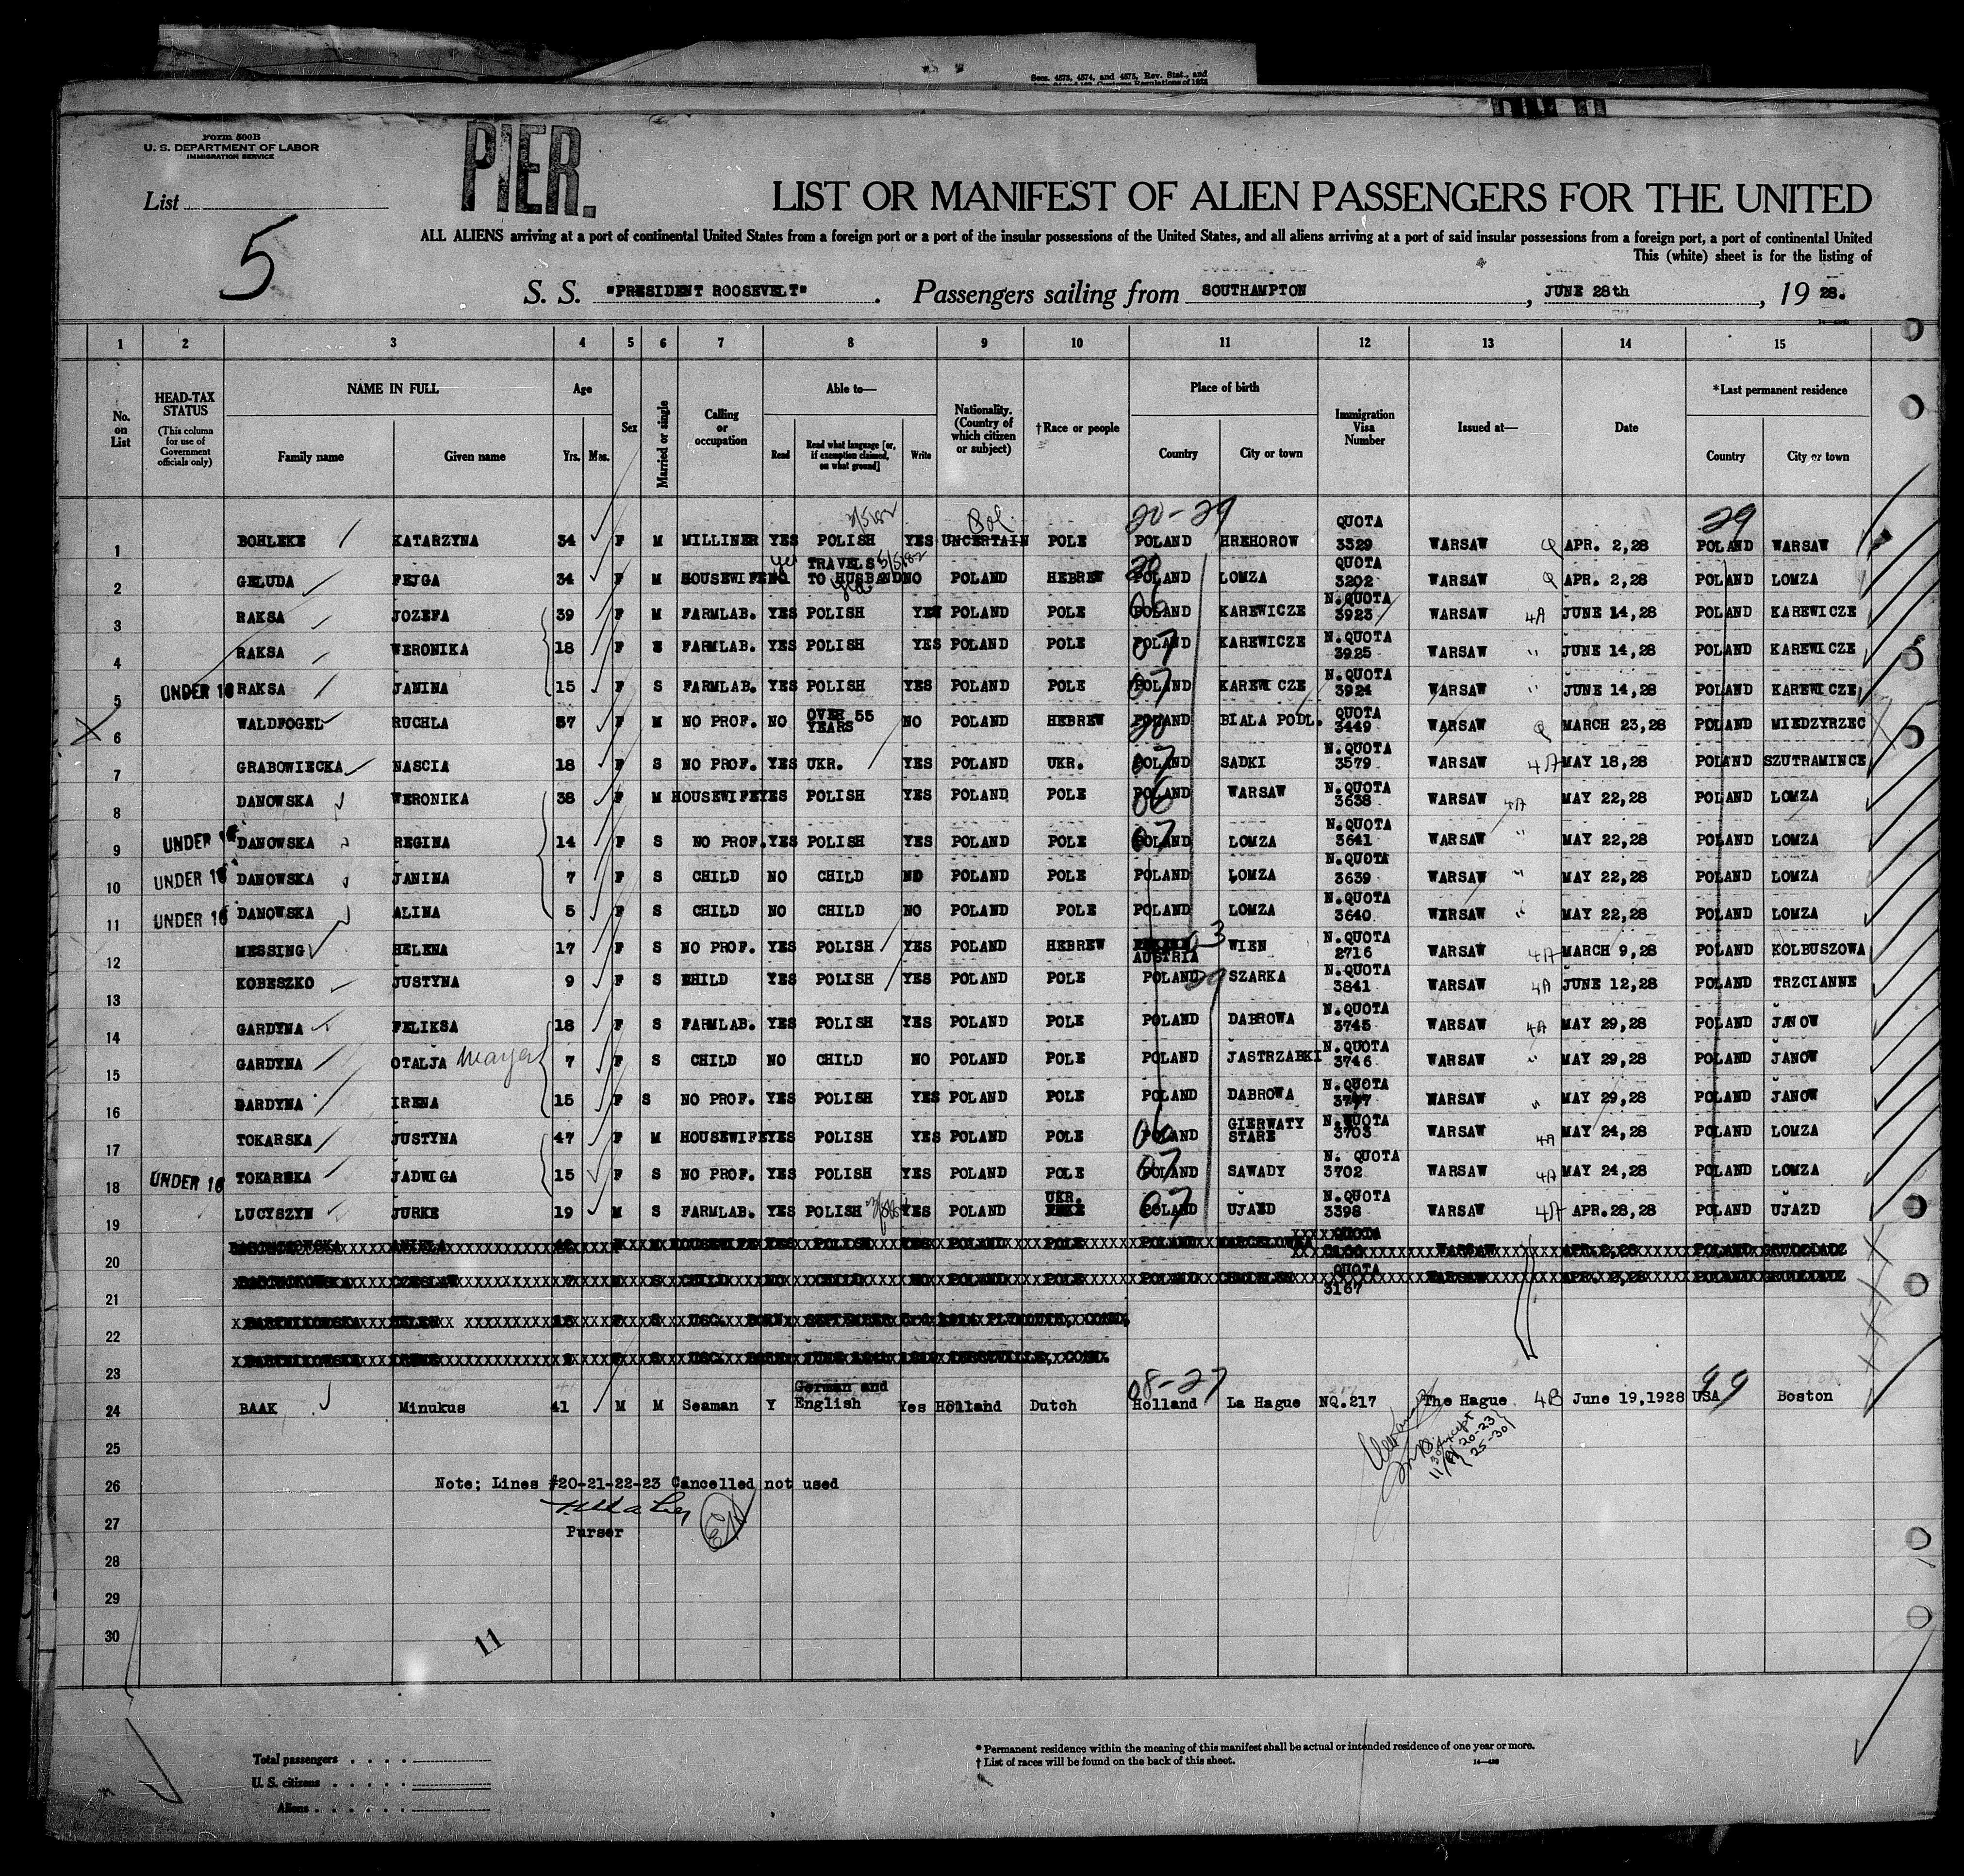 Secs. 4573, 4574, and 4575, Rev. Stat., and
Form 500B
U. S. DEPARTMENT OF LABOR
IMMIGRATION SERVICE
PIER.
List
5
LIST OR MANIFEST OF ALIEN PASSENGERS FOR THE UNITED
ALL ALIENS arriving at a port of continental United States from a foreign port or a port of the insular possessions of the United States, and all aliens arriving at a port of said insular possessions from a foreign port, a port of continental United
This (white) sheet is for the listing of
S. S. "PRESIDENT ROOSEVELT" . Passengers sailing from SOUTHAMPTON , JUNE 28th , 19 28.
1 2 3 4 5 6 7 8 9 10 11 12 13 14 15
No. on List
HEAD-TAX STATUS (This column for use of Government officials only)
NAME IN FULL Family name Given name
Age Yrs. Mos.
Sex
Married or single
Calling or occupation
Able to— Read Read what language [or, if exemption claimed, on what ground] Write
Nationality. (Country of which citizen or subject)
†Race or people
Place of birth Country City or town
Immigration Visa Number
Issued at—
Date
*Last permanent residence Country City or town
1 BOHLEKE KATARZYNA 34 F M MILLINER YES POLISH YES UNCERTAIN Pol. POLE 20-29 POLAND HREHOROW QUOTA 3329 WARSAW Q APR. 2,28 29 POLAND WARSAW
2 GELUDA FEJGA 34 F M HOUSEWIFE NO yes TRAVELS TO HUSBAND NO POLAND HEBREW 20 POLAND LOMZA QUOTA 3202 WARSAW Q APR. 2,28 POLAND LOMZA
3 RAKSA JOZEFA 39 F M FARMLAB. YES POLISH YES POLAND POLE 06 POLAND KAREWICZE N.QUOTA 3923 WARSAW 4A JUNE 14,28 POLAND KAREWICZE
4 RAKSA WERONIKA 18 F S FARMLAB. YES POLISH YES POLAND POLE 07 POLAND KAREWICZE N.QUOTA 3925 WARSAW " JUNE 14,28 POLAND KAREWICZE
5 UNDER 16 RAKSA JANINA 15 F S FARMLAB. YES POLISH YES POLAND POLE 07 POLAND KAREWICZE N.QUOTA 3924 WARSAW " JUNE 14,28 POLAND KAREWICZE
X 6 WALDFOGEL RUCHLA 57 F M NO PROF. NO OVER 55 YEARS NO POLAND HEBREW 20 POLAND BIALA PODL. QUOTA 3449 WARSAW Q MARCH 23,28 POLAND MIEDZYRZEC
7 GRABOWIECKA NASCIA 18 F S NO PROF. YES UKR. YES POLAND UKR. 07 POLAND SADKI N.QUOTA 3579 WARSAW 4A MAY 18,28 POLAND SZUTRAMINCE
8 DANOWSKA WERONIKA 38 F M HOUSEWIFE YES POLISH YES POLAND POLE 06 POLAND WARSAW N.QUOTA 3638 WARSAW 4A MAY 22,28 POLAND LOMZA
9 UNDER 16 DANOWSKA REGINA 14 F S NO PROF. YES POLISH YES POLAND POLE 07 POLAND LOMZA N.QUOTA 3641 WARSAW " MAY 22,28 POLAND LOMZA
10 UNDER 16 DANOWSKA JANINA 7 F S CHILD NO CHILD NO POLAND POLE POLAND LOMZA N.QUOTA 3639 WARSAW " MAY 22,28 POLAND LOMZA
11 UNDER 16 DANOWSKA ALINA 5 F S CHILD NO CHILD NO POLAND POLE POLAND LOMZA N.QUOTA 3640 WERSAW " MAY 22,28 POLAND LOMZA
12 MESSING HELENA 17 F S NO PROF. YES POLISH YES POLAND HEBREW AUSTRIA 03 WIEN N.QUOTA 2716 WARSAW 4A MARCH 9,28 POLAND KOLBUSZOWA
13 KOBESZKO JUSTYNA 9 F S CHILD YES POLISH YES POLAND POLE POLAND 29 SZARKA N.QUOTA 3841 WARSAW 4A JUNE 12,28 POLAND TRZCIANNE
14 GARDYNA FELIKSA 18 F S FARMLAB. YES POLISH YES POLAND POLE POLAND DABROWA N.QUOTA 3745 WARSAW 4A MAY 29,28 POLAND JANOW
15 GARDYNA OTALJA 7 F S CHILD NO CHILD NO POLAND POLE POLAND JASTRZABKI N.QUOTA 3746 WARSAW " MAY 29,28 POLAND JANOW
16 GARDYNA IRENA 15 F S NO PROF. YES POLISH YES POLAND POLE POLAND DABROWA N.QUOTA 3747 WARSAW " MAY 29,28 POLAND JANOW
17 TOKARSKA JUSTYNA 47 F M HOUSEWIFE YES POLISH YES POLAND POLE 06 POLAND GIERWATY STARE N.QUOTA 3703 WARSAW 4A MAY 24,28 POLAND LOMZA
18 UNDER 16 TOKARSKA JADWIGA 15 F S NO PROF. YES POLISH YES POLAND POLE 07 POLAND SAWADY N. QUOTA 3702 WARSAW 4A MAY 24,28 POLAND LOMZA
19 LUCYSZYN JURKE 19 M S FARMLAB. YES POLISH YES POLAND UKR. 07 POLAND UJAZD N.QUOTA 3398 WARSAW 4A APR.28,28 POLAND UJAZD
20 HOUSEWIFE YES POLISH YES POLAND POLE POLAND QUOTA WARSAW APR.2,28 POLAND
21 CZESLAW 7 M S CHILD NO CHILD NO POLAND POLE POLAND QUOTA 3167 WARSAW APR. 2,28 POLAND
22 HELEN F S USC. BORN SEPTEMBER PLYMOUTH, CONN.
23 USC. BORN JUNE CONN.
24 BAAK Minukus 41 M M Seaman Y German and English Yes Holland Dutch 08-27 Holland La Hague NQ.217 The Hague 4B June 19,1928 USA 99 Boston
25
26
27
28
29
30
except 20-23
25-30
Note; Lines #20-21-22-23 Cancelled not used
Purser
11
Total passengers
U. S. citizens
Aliens
* Permanent residence within the meaning of this manifest shall be actual or intended residence of one year or more.
† List of races will be found on the back of this sheet.